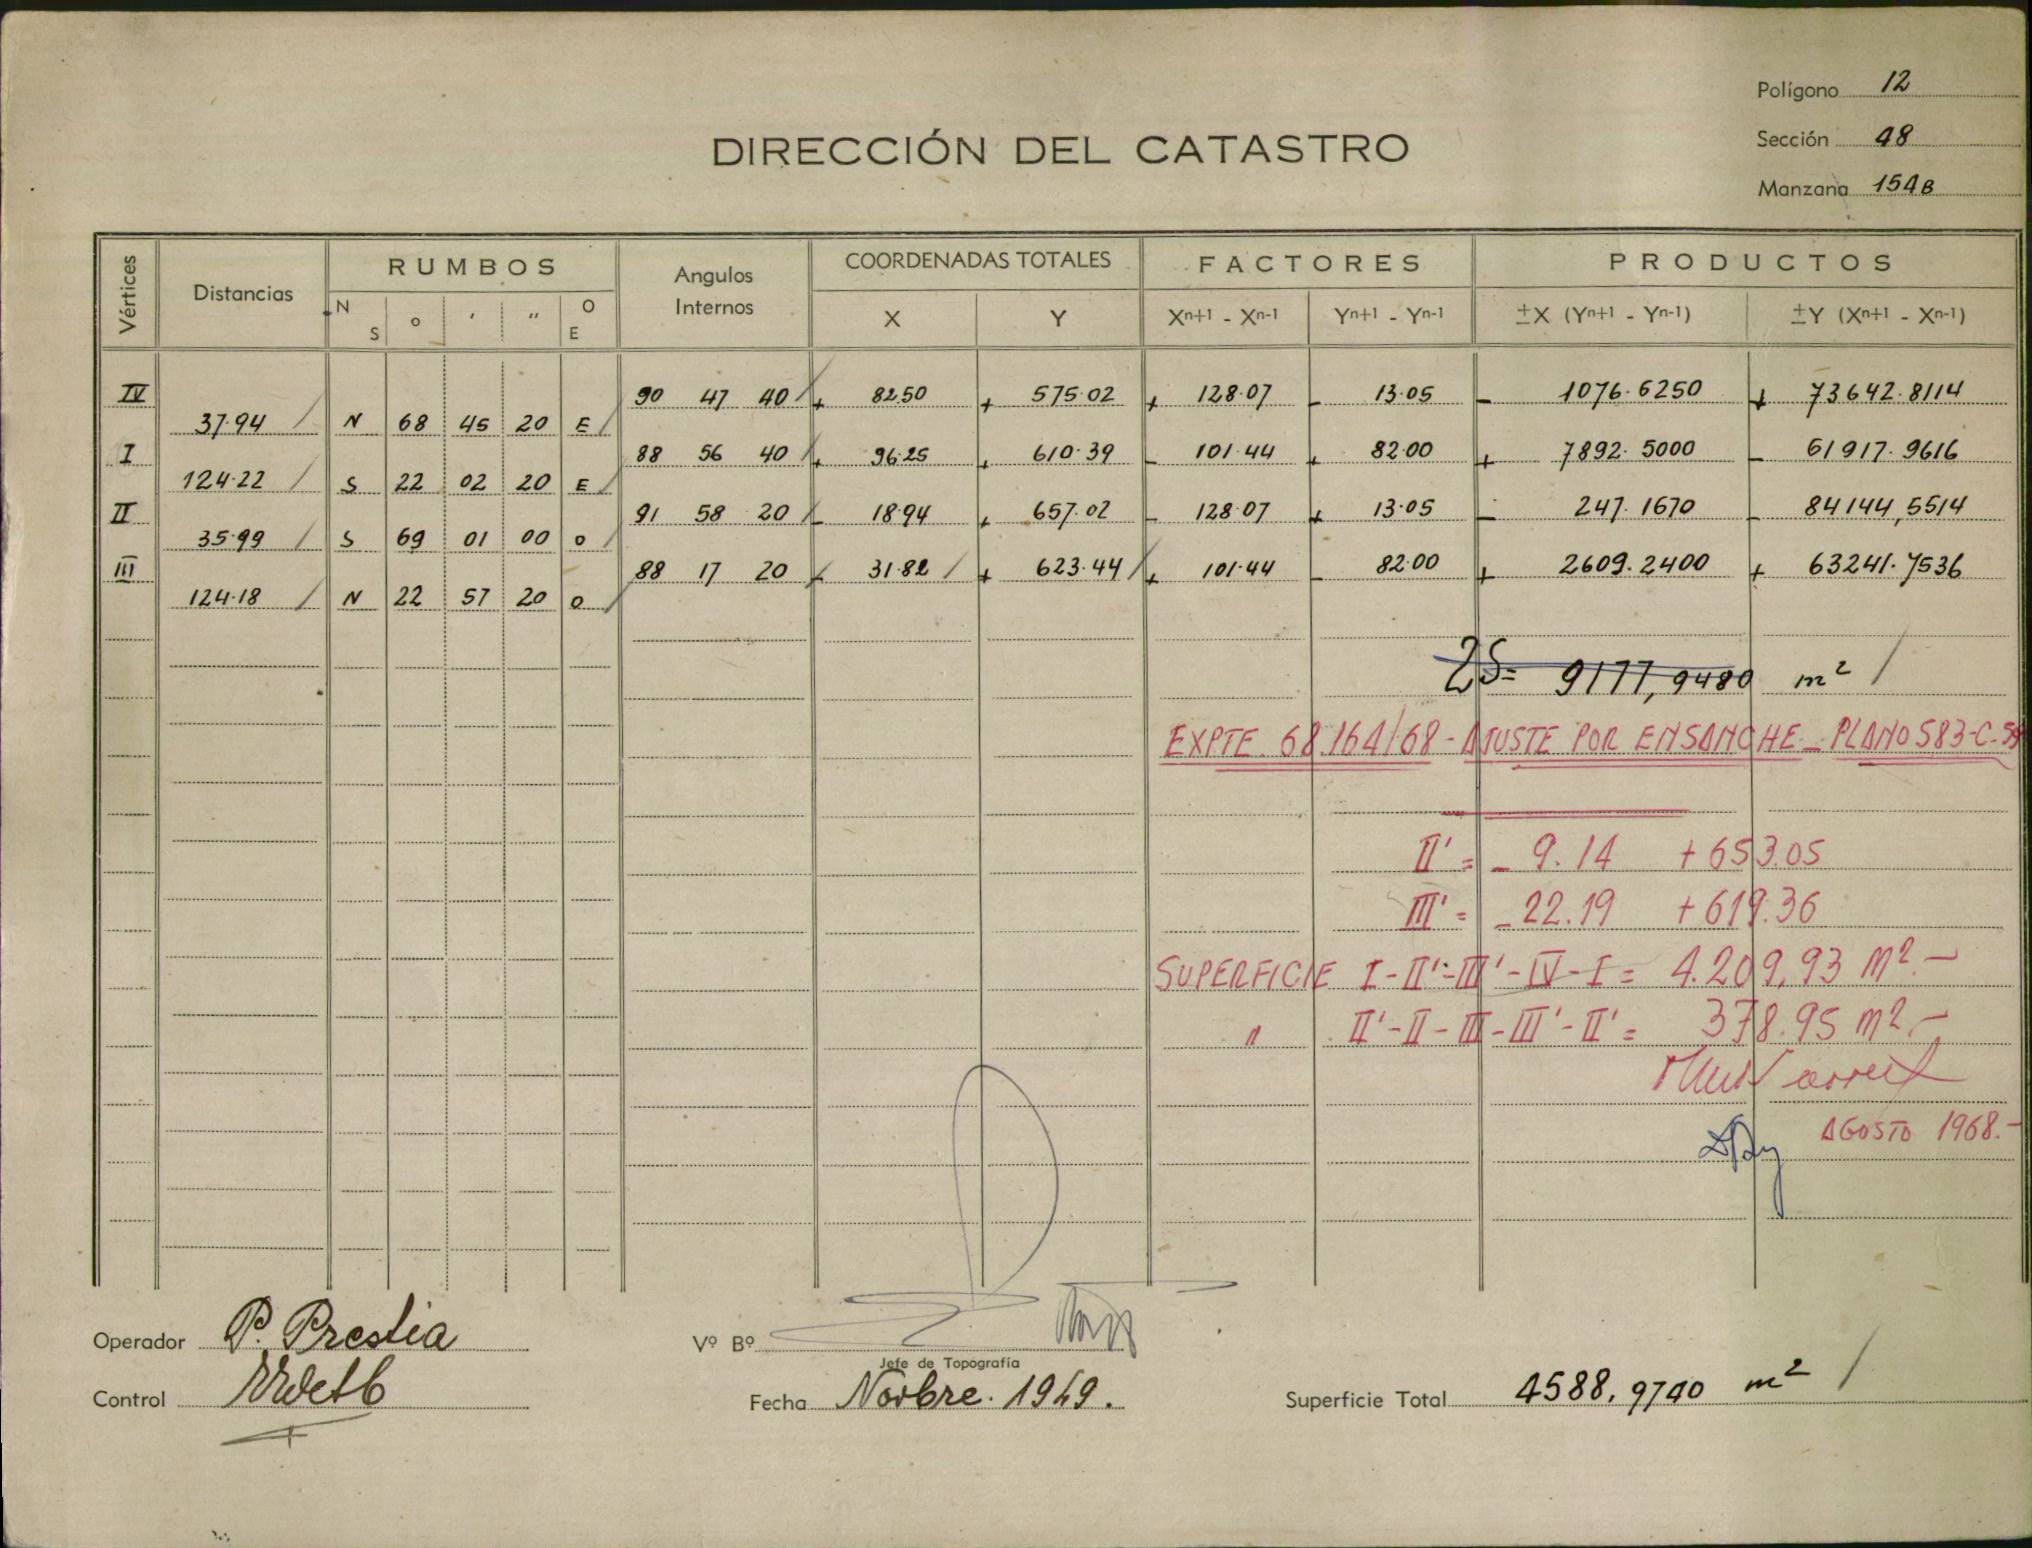 Polígono 12
Sección 48
Manzana 154B
DIRECCIÓN DEL CATASTRO
Vértices Distancias RUMBOS Angulos Internos COORDENADAS TOTALES FACTORES PRODUCTOS
N S o ' " O E X Y Xn+1 - Xn-1 Yn+1 - Yn-1 ±X (Yn+1 - Yn-1) ±Y (Xn+1 - Xn-1)
IV 90 47 40 + 82.50 + 575.02 + 128.07 - 13.05 - 1076.6250 + 73642.8114
37.94 N 68 45 20 E
I 88 56 40 + 96.25 + 610.39 - 101.44 + 82.00 + 7892.5000 - 61917.9616
124.22 S 22 02 20 E
II 91 58 20 - 18.94 + 657.02 - 128.07 + 13.05 - 247.1670 - 84144,5514
35.99 S 69 01 00 O
III 88 17 20 - 31.82 + 623.44 + 101.44 - 82.00 + 2609.2400 + 63241.7536
124.18 N 22 57 20 O
2S= 9177,9480 m²
EXPTE. 68.164/68 - AJUSTE POR ENSANCHE - PLANO 583-C-
II' = - 9.14 + 653.05
III' = - 22.19 + 619.36
SUPERFICIE I-II'-III'-IV-I = 4.209,93 m².-
" II'-II-III-III'-II' = 378.95 m².-
AGOSTO 1968.-
Operador P. Prestia
Control
Vº Bº
Jefe de Topografía
Fecha Novbre. 1949.
Superficie Total 4588,9740 m²